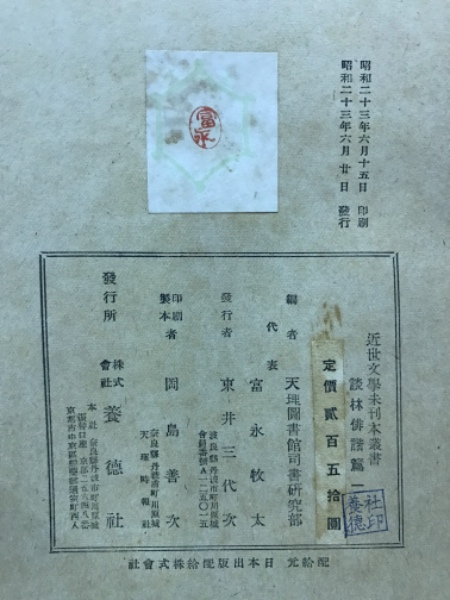 昭和二十三年六月十五日 印刷
昭和二十三年六月廿日 發行
富永
近世文學未刊本叢書
談林俳諧篇一
定價貳百五拾圓
編者 天理圖書館司書研究部
代表 富永牧太
發行者 東井三代次
會員番號A一一五〇一五
印刷製本者 岡島善次
天理時報社
發行所 株式會社 養德社
養德社印
配給元 日本出版配給株式會社